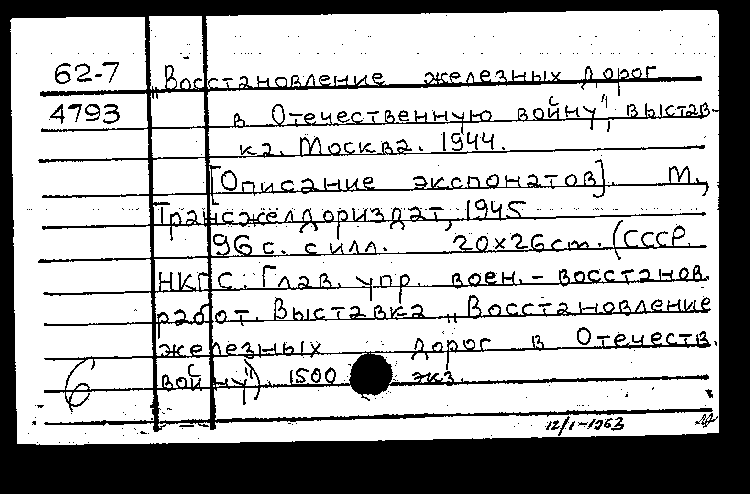 62-7 „Восстановление железных дорог
4793 в Отечественную войну", выстав-
ка. Москва. 1944.
[Описание экспонатов]. М.,
Трансжелдориздат, 1945.
96 с. с илл. 20х26 cm. (СССР.
НКПС. Глав. упр. воен. - восстанов.
работ. Выставка „Восстановление
железных дорог в Отечеств.
6 войну"). 1500 экз.
12/I-1963